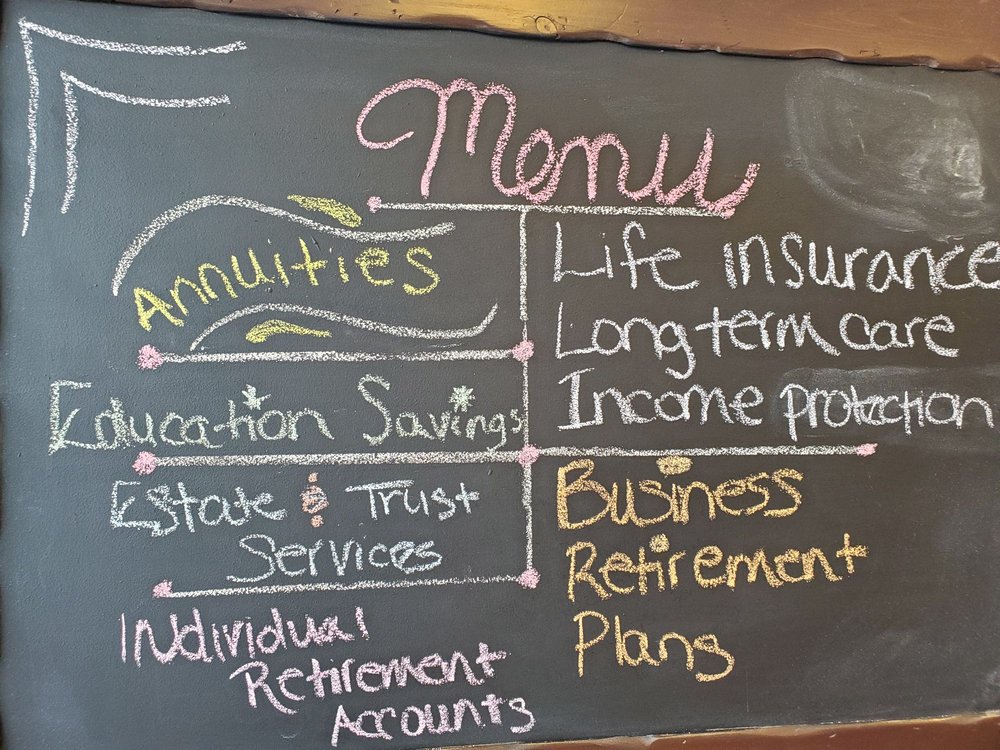 Menu
Annuities
Education Savings
Estate & Trust
Services
Individual
Retirement
Accounts
Life insurance
Long term care
Income protection
Business
Retirement
Plans